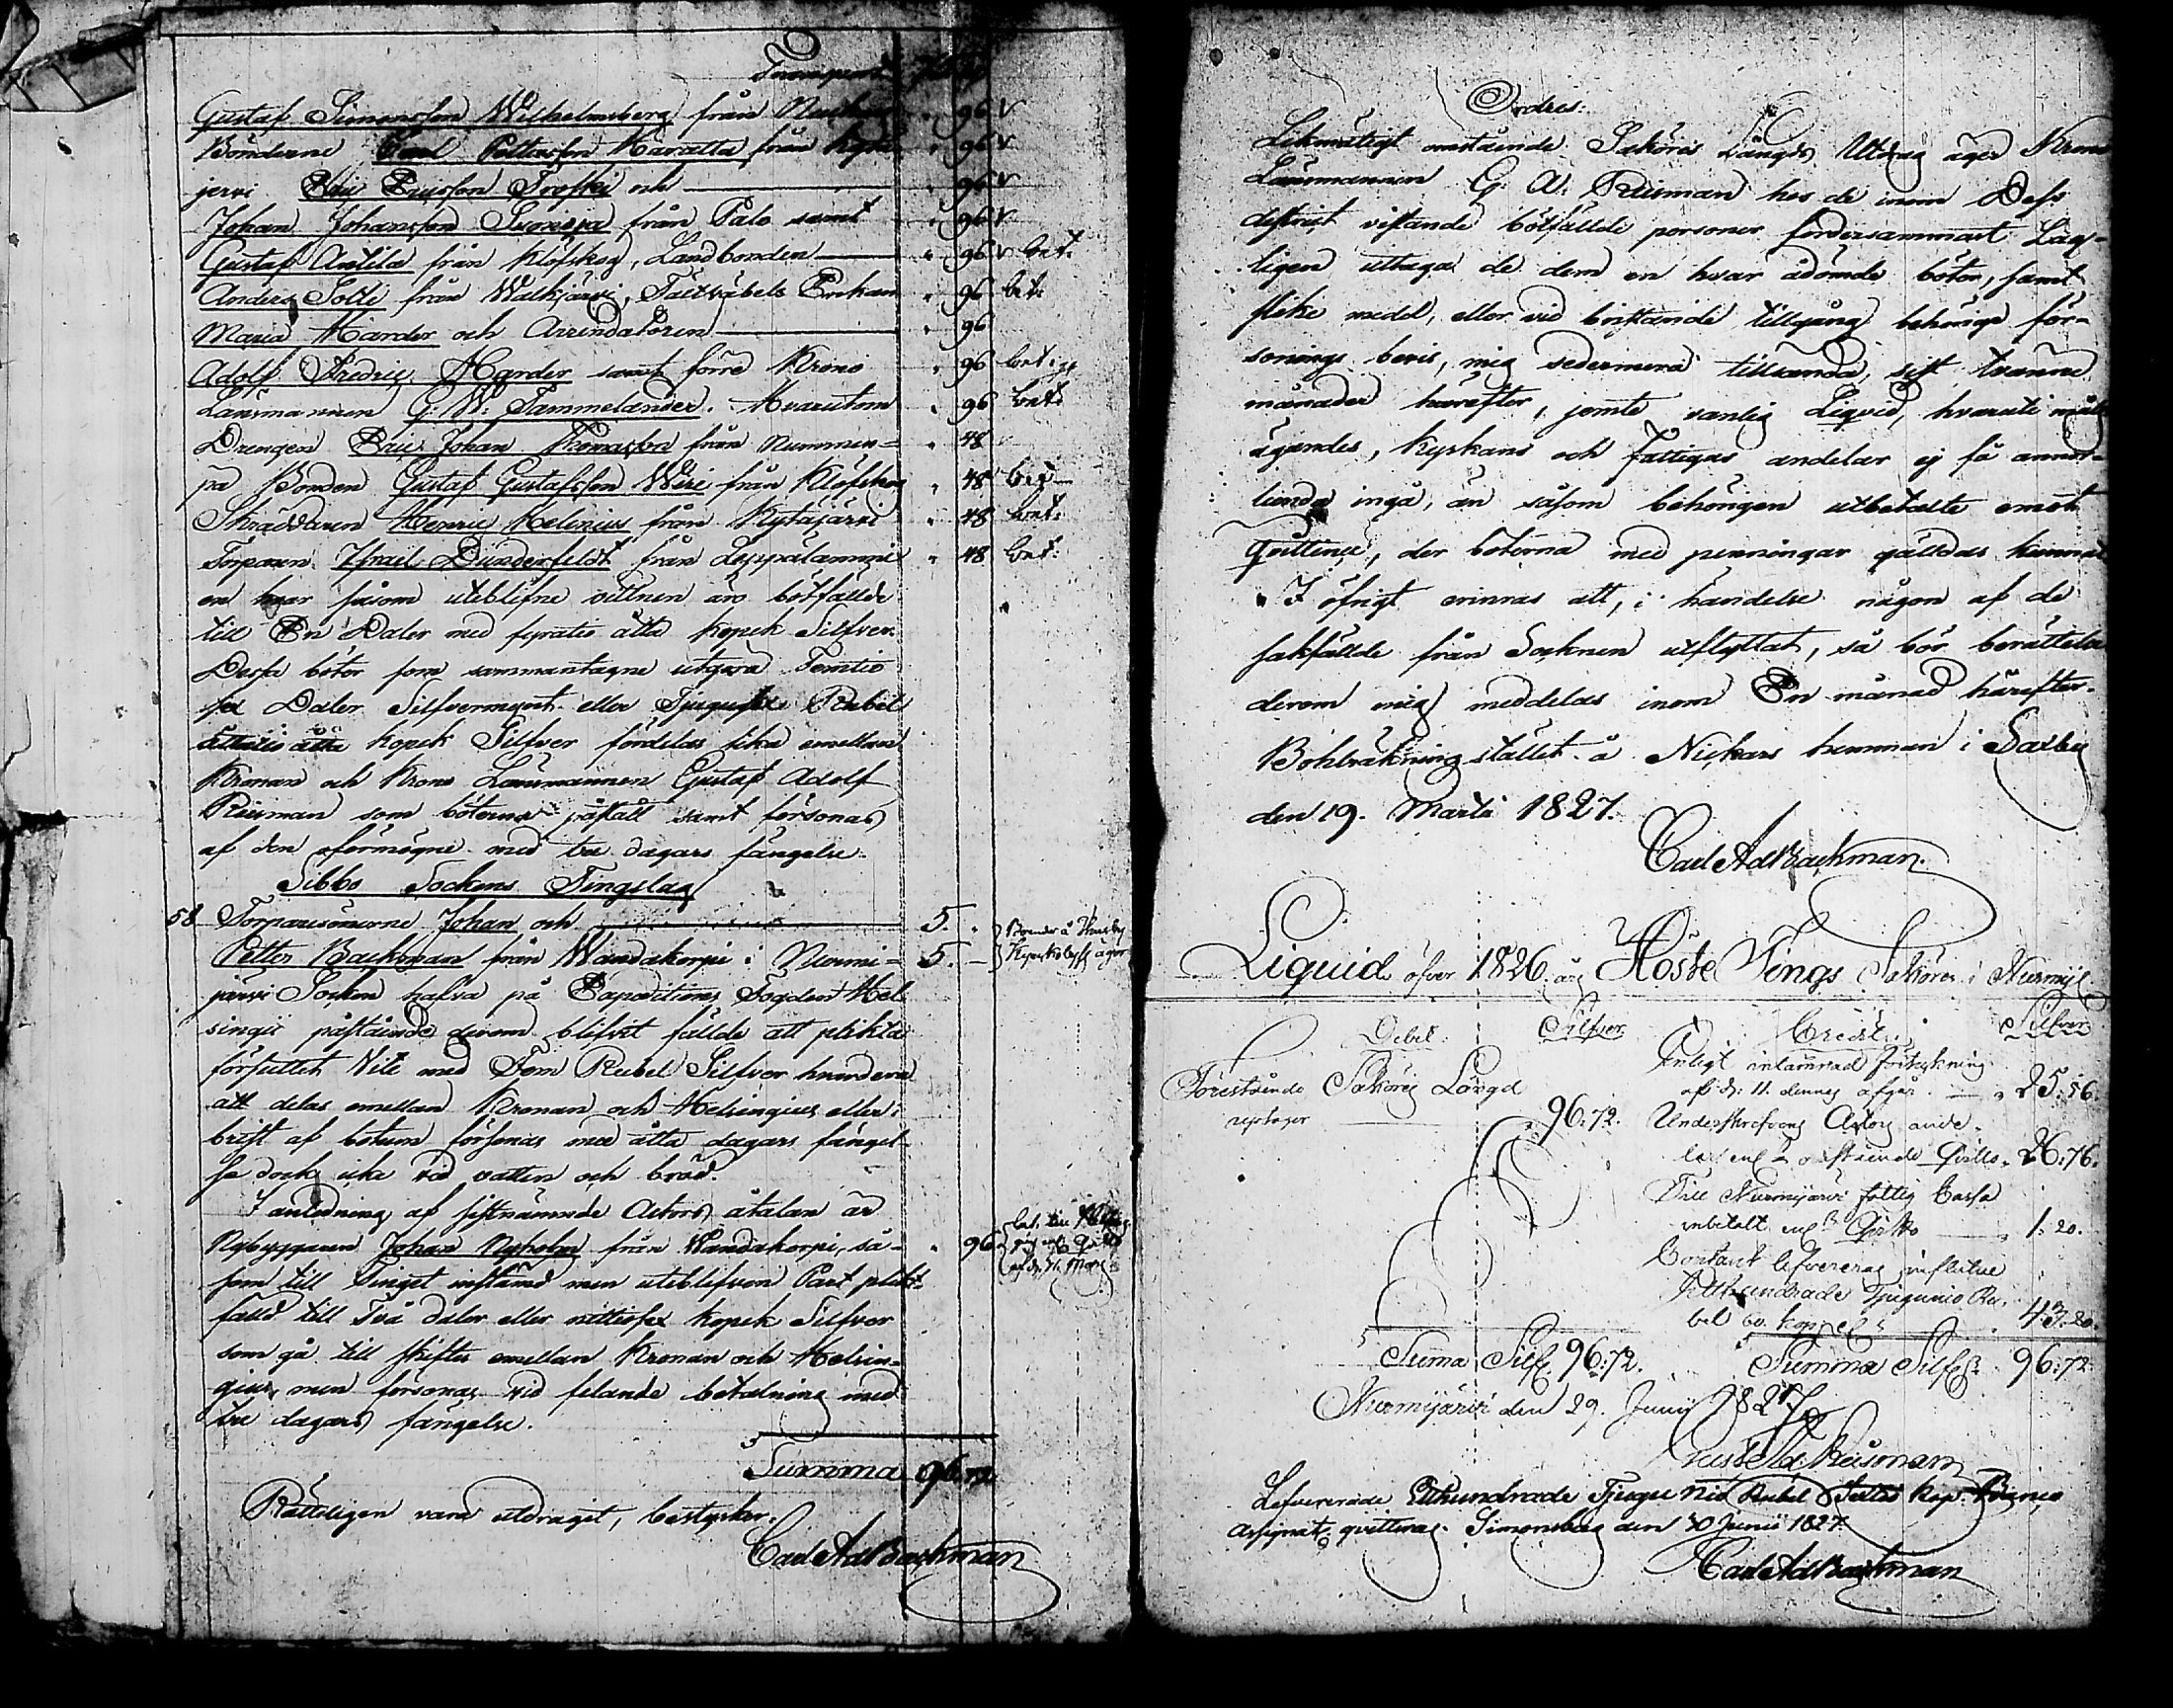 Transport
Gustaf Simonsson Wilhelmsberg från " 96 v
Bönderne Carl Pettersson Käratta från Kytä " 96 v
jervi Eric Ericsson Trofski och " 96 v
Johan Johansson från Palo samt " 96 v
Gustaf Antila från Klöfskog, Landbonden " 96 v bet:
Anders Solti från Walkjärvi, Fältväbels Enkan " 96 bet:
Maria Harder och Arrendatoren " 96
Adolf Fredric Harder samt förre Krono " 96 bet:
Länsmannen G: W: Tammelander. Hvarutom " 96 bet:
Drengen Eric Johan Thomasson från Nummen= " 48
pä Bonden Gustaf Gustafsson Wiri från Klöfskog " 48 bet
Skräddaren Henric Helenius från Kytäjärvi " 48 bet:
Torparen Israil Dunderfeldt från Leppälammi " 48 bet:
en hvar såsom uteblifne vittnen äro bötfällde
till En Daler med fyratio åtta kopek Silfver.
Dessa böter som sammantagne utgöra Femtio
sex Daler Silfvermynt eller Tjugusex Rubel
åttatio åtta kopek Silfver fördelas lika emellan
Kronan och Krono Länsmannen Gustaf Adolf
Reisman som böterne påstått samt försonas
af den oförmögne med tre dagars fängelse.
Sibbo Sockens Tingslag
58 Torparesönerne Johan och 5. "
Petter Backman från Wandakorpi i Nurmi= 5. —
järvi Socken hafva på Expeditions Fogden Hel
singii påstående derom blifvit fällde att plikta
försuttet Vite med Fem Rubel Silfver hvardera
att delas emellan Kronan och Helsingius eller i
brist af botum försonas med åtta dagars fängel
se dock icke vid vatten och bröd.
I anledning af sistnämnde Actors åtalan är
Nybyggaren Johan Nyholm från Wandakorpi, så= " 96
som till Tinget instämd men uteblifven Part plikt=
fälld till Två daler eller nittiosex kopek Silfver
som gå till skiftes emellan Kronan och Helsin=
gius, men försonas vid felande betalning med
tre dagars fängelse.
Summa 96:72
Rätteligen vara utdraget, bestyrker.
Carl Ad Backman
Ordres:
Likmätigt omstående Saköres Längds Utdrag äger Krono
Länsmannen G: A: Reisman hos de inom Dess
district vistande bötfällde personer fordersammast Lag=
ligen uttaga de dem en hvar ådömde böter, samt
slike medel, eller vid bristande tillgång behörige för=
sonings bevis, mig sedermera tillsända, sist tvänne
månader härefter, jemte vanlig Liqvid, hvaruti måls
ägandes, Kyrkans och Fattigas andelar ej få annor=
lunda ingå, än såsom behörigen utbetalte emot
Qvittence, der böterna med penningar gälldas kunnat
I öfrigt erinras att, i händelse någon af de
sakfällde från Socknen utflyttat, så bör berättelse
derom mig meddelas inom En månad härefter.
Bohlräkningstället å Nickars hemman i Saxby
den 19. Martii 1827.
Carl Ad Backman.
Liquid öfver 1826 års Höste Tings Sakören i Nurmijr.
Debet: Silfver
Förestående Saköres Längd
upptager 96:72.
Summa Silfr 96:72.
Credit: Silfver
Enligt inlämnad förtekning
af d: 11. dennes afgår — " 25:56.
Underskrefvens Actors ande=
Qvitto " 26:76.
Till Nurmijärvi fattig Cassa
inbetalt Qvitto — " 1:20.
Contant lefvereras influtne
Etthundrade Tjugunio Ru=
bel 60. kopek 43:20.
Summa Silfr 96:72
Nurmijärvi den 29. Junii 1827
Gust: Ad: Reisman
Lefvererade Etthundrade Tjugu Nio Rubel Sextio Kop: Banco
Assignat: qvitteras. Simonsberg den 30 Junii 1827.
Carl Ad Backman